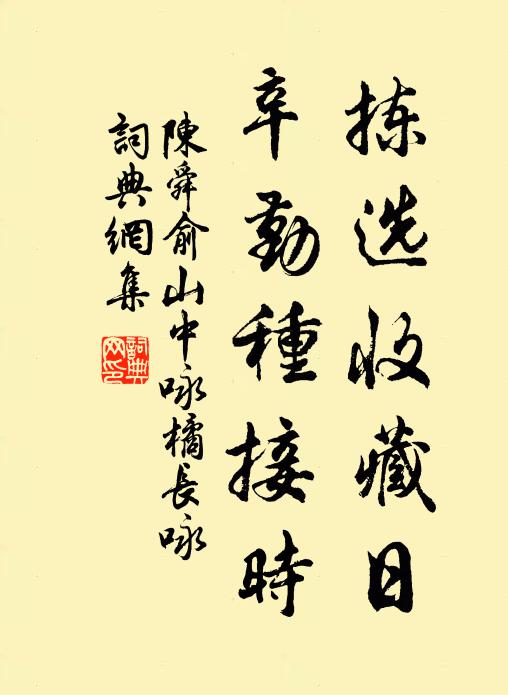 拣选收藏日
辛勤種接時
陳舜俞山中咏橘長咏
詞典網集
詞典網印